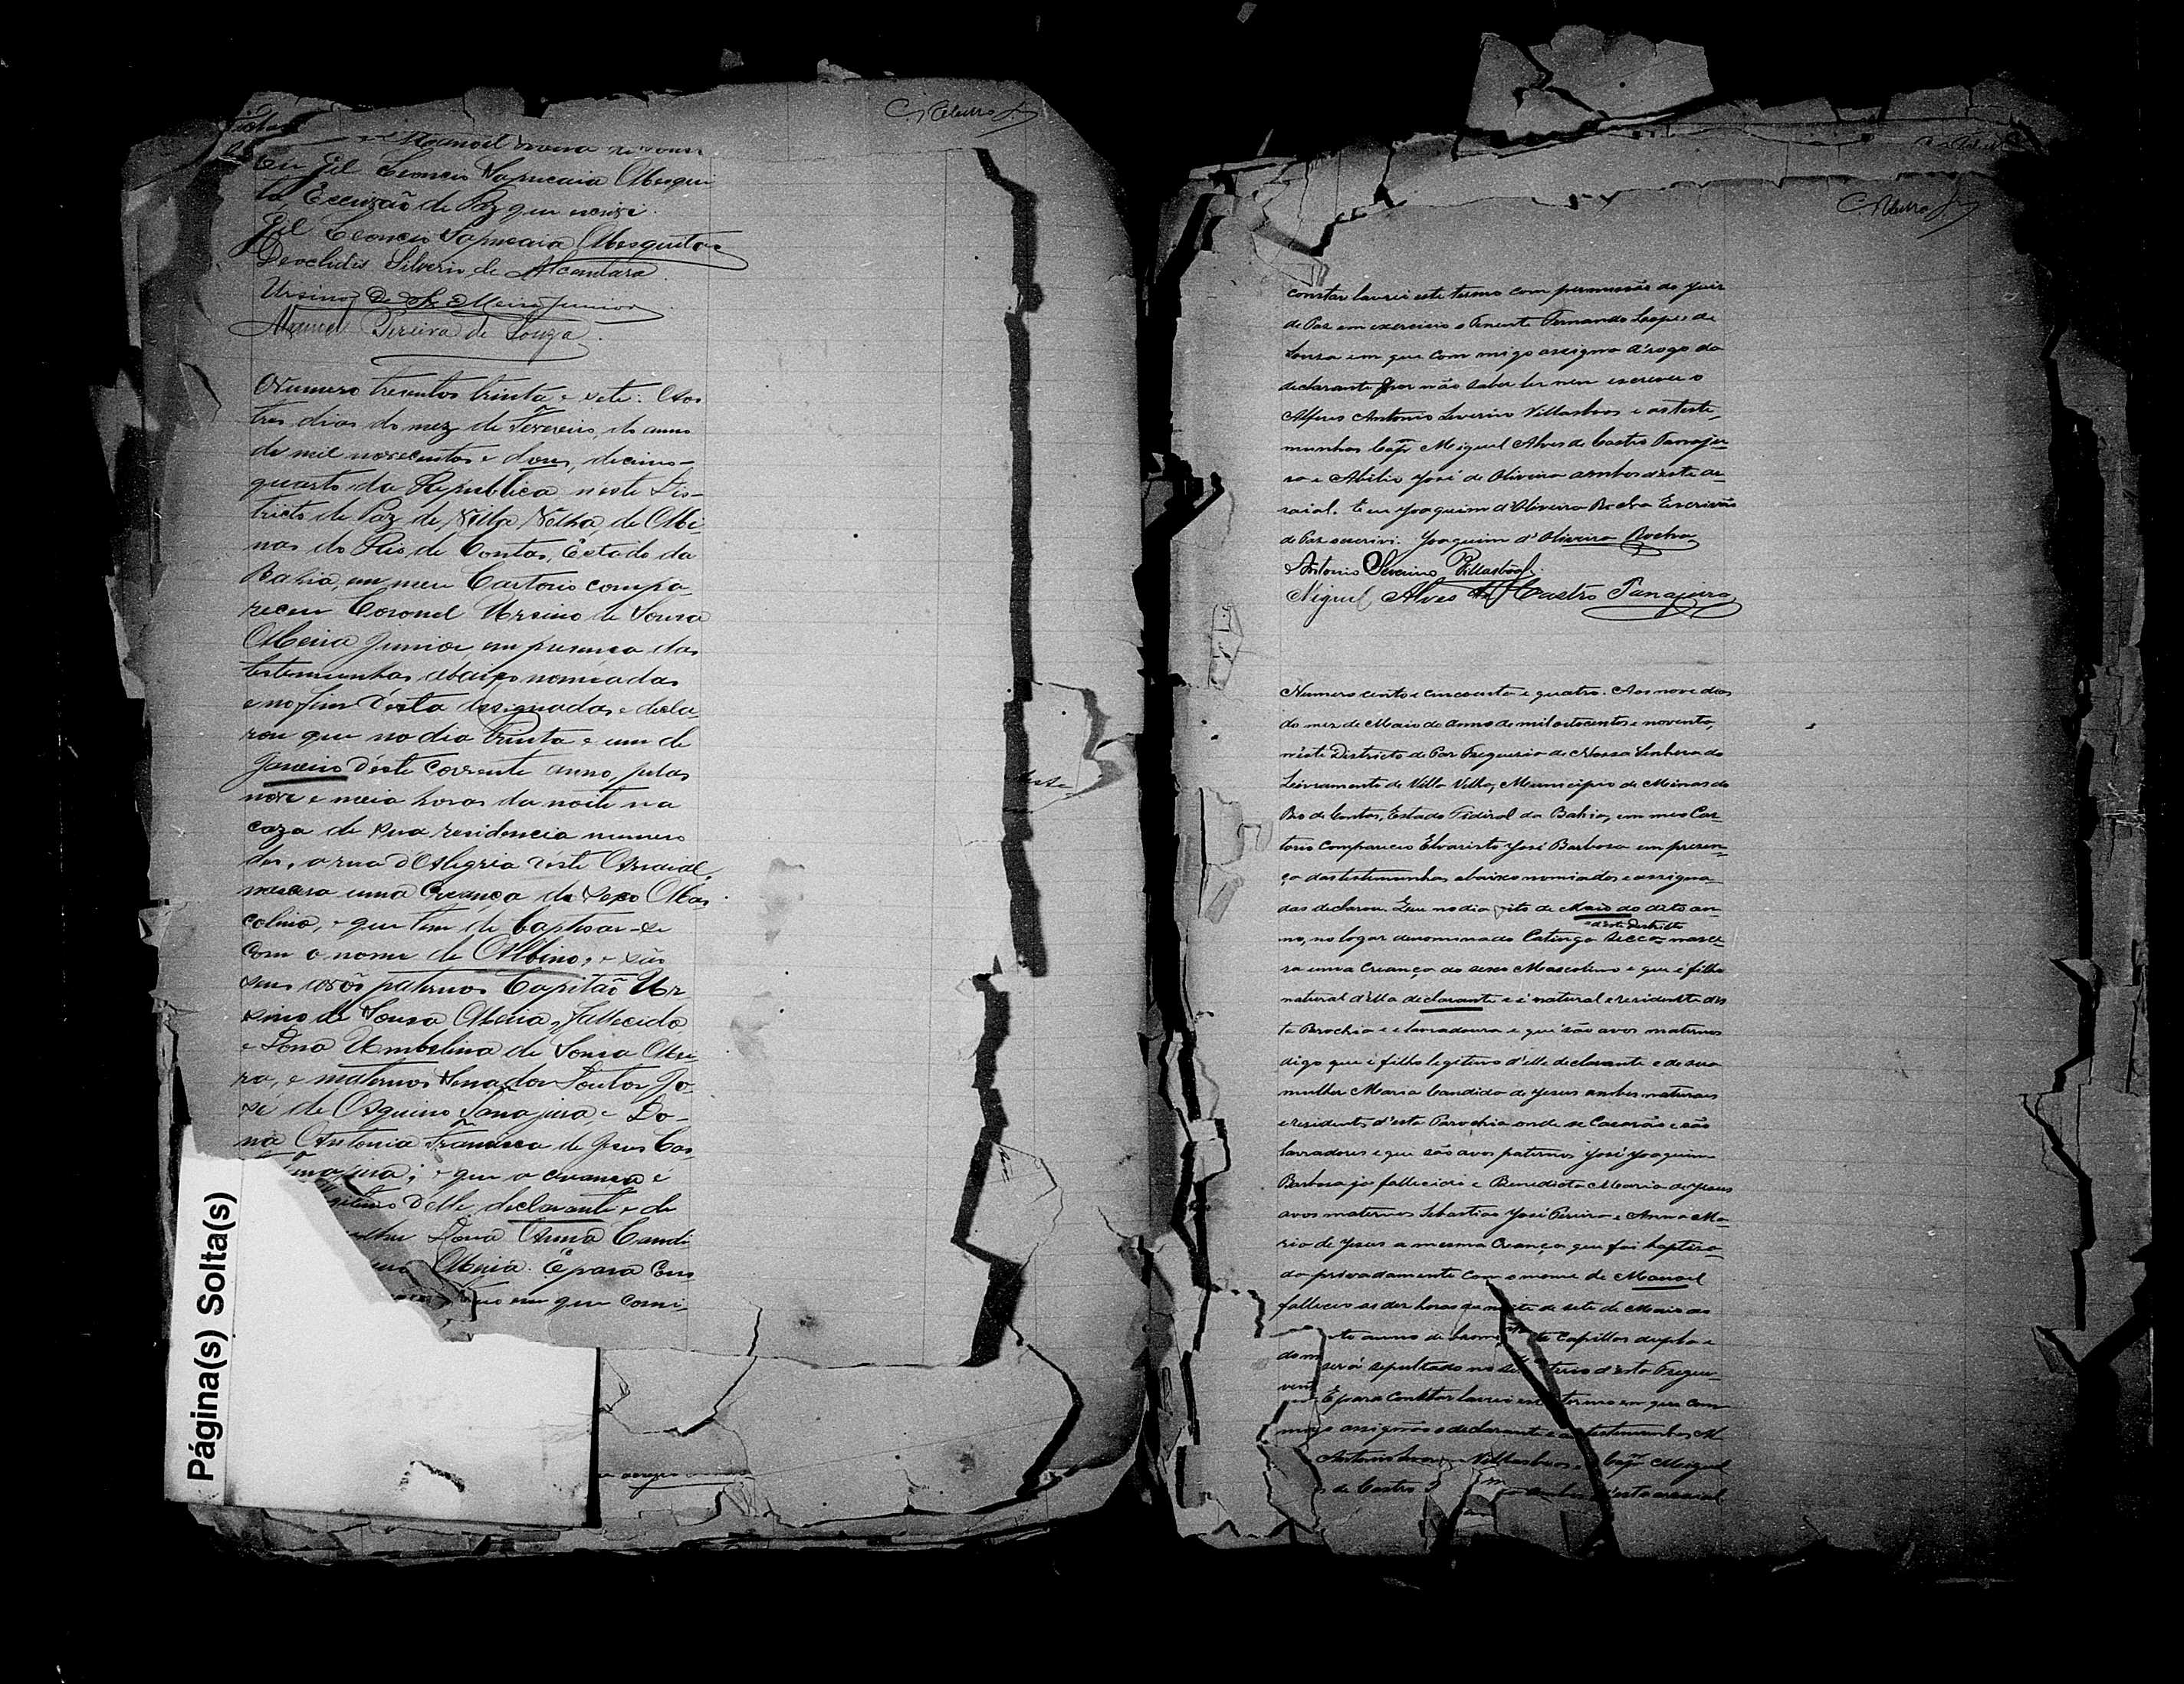 Manoel Pereira de Souza
Eu Gil Leoncio Sapucaia Mesqui
ta, Escrivão de Paz que escrivi.
Gil Leoncio Sapucaia Mesquita
Deoclidis Silverio de Alcantara
Ursino de S. Meira Junior
Manuel Pereira de Souza
Numero tresentos trinta e sete. Aos
tres dias do mez de Fevereiro, do anno
de mil novecentos e dous, decimo-
quarto da Republica neste Dis-
tricto de Paz de Villa Velha, de Mi-
nas do Rio de Contas, Estado da
Bahia, em meu Cartorio compa-
receu Coronel Ursino de Sousa
Meira Junior, em presença das
testemunhas abaixo nomeadas
e no fim d'esta assignadas e decla-
rou que no dia trinta e um de
Janeiro d'este corrente anno, pelas
nove e meia horas da noite na
caza de sua residencia numero
dos, a rua d'Alegria d'este Arraial,
nascera uma Creança do sexo Mas-
colino, e que tem de baptisar-se
com o nome de Albino, e são
seus avós paternos Capitão Ur
sino de Sousa Meira, fallecido
e Dona Umbelina de Sousa Mei-
ra, e maternos Senador Doutor Jo-
sé de Aquino Tanajura e Do-
na Antonia Francisca de Jesus Cas
Tanajura; e que a creança é
legitimo d'elle declarante e de
mulher Dona Anna Candi
Meira. E para Cons
em que comi-
C. Ribeiro Jr.
constar lavrei este termo com permissão do Juiz
de Paz em exercicio o Tenente Fernando Lopes de
Souza em que com migo assigna á rogo da
declarante por não saber ler nem escrever o
Alferes Antonio Severino Villasboas e as teste-
munhas Capm Miguel Alves de Castro Tanaju-
ra e Abilio José de Oliveira ambos d'este ar-
raial. E eu Joaquim d'Oliveira Rocha Escrivão
de Paz escrivi. Joaquim d'Oliveira Rocha
Antonio Severino Villasboas.
Miguel Alves de Castro Tanajura
Numero cento e cincoenta e quatro. Aos nove dias
do mez de Maio do anno de mil oitocentos e noventa,
n'este Districto de Paz Freguezia de Nossa Senhora do
Livramento de Villa Velha, Municipio de Minas do
Rio de Contas, Estado Fidiral da Bahia, em meo Car-
torio compareceo Elvaristo José Barbosa em presen-
ça das testemunhas abaixo nomiadas e assigna-
das declarou. Que no dia oito de Maio do dito an-
d'este Districto
no, no logar denominado Catinga Secca nasce-
ra uma Creança do sexo Mascolino e que é filho
natural d'ella declarante e é natural e residente des
ta Parochia e é lavradoura e que são avos maternos
digo que é filho legitimo d'elle declarante e de sua
mulher Maria Candida de Jesus ambos naturaes
e residents d'esta Parochia onde se Casarão e são
lavradores e que são avos paternos José Joaquim
Barbosa já fallecido e Benedicta Maria de Jesus
avos maternos Sebastião José Pereira e Anna Ma-
ria de Jesus a mesma Creança que foi baptisa-
da privadamente com o nome de Manoel
falleceo as dez horas da noite de sete de Maio do
to anno de Capillar dupla e
será sepultado no d'esta Fregue-
E para Constar lavrei este termo em que com
migo assignão o declarante e as testemunhas Al
Antonio Villasboas e Capm Miguel
de Castro d'este arraial
Página(s) Solta(s)